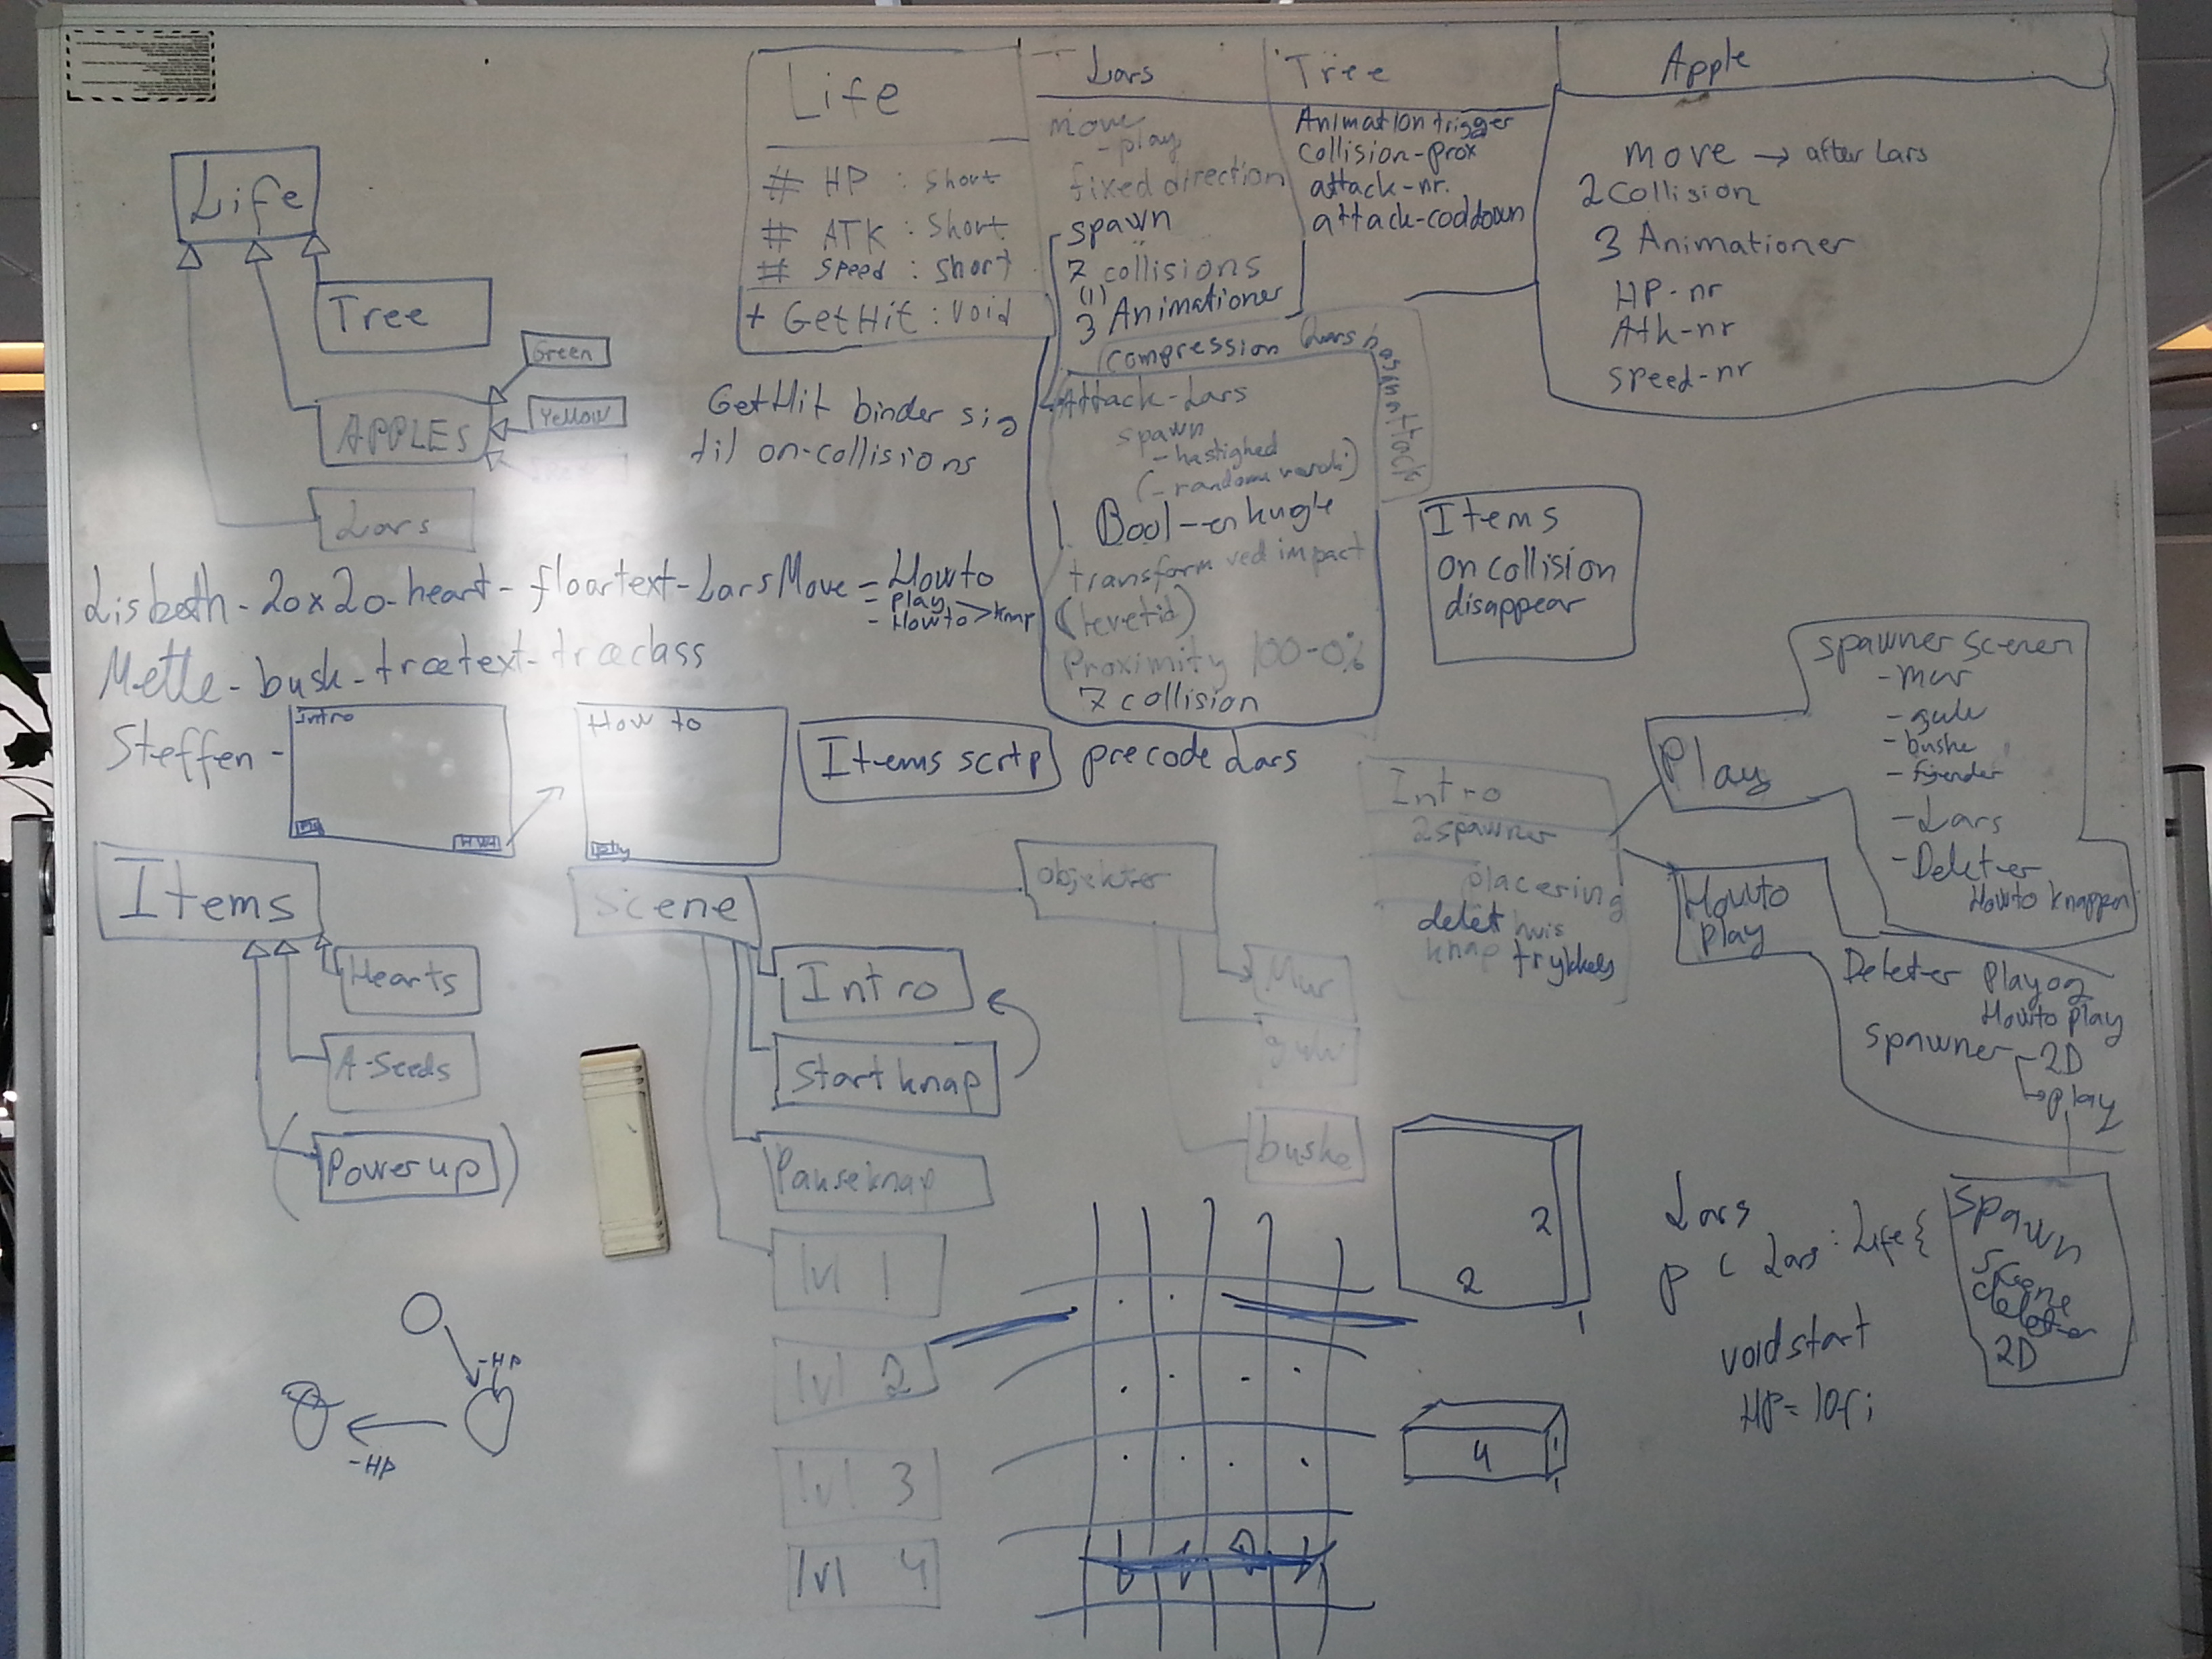 Life
Tree
Green
Yellow
APPLES
Lars
Life
# HP : short
# ATK : short
# speed : short
+ GetHit : void
GetHit binder sig
til on-collisions
Lars
move
- play
fixed direction
spawn
7 collisions
(1)
3 Animationer
compression
Lars has mattack
Attack-Lars
spawn
- hastighed
(- random
1 Bool - en kugle
transform ved impact
(levetid)
Proximity 100-0%
7 collision
Tree
Animation trigger
collision-prox
attack-nr.
attack-cooldown
Apple
move → after Lars
2 Collision
3 Animationer
HP-nr
Atk-nr
speed-nr
Items
on collision
disappear
Lisbeth - 20x20 - heart - floortext - Lars Move - Howto
- play
- Howto > knap
Mette - busk - trætext - træclass
Steffen -
Intro
How to
play
Items scrtp
precode Lars
Items
Hearts
A-Seeds
(Power up)
Scene
Intro
Start knap
Pauseknap
lvl 1
lvl 2
lvl 3
lvl 4
objekter
Mur
gulv
buske
Intro
2 spawner
placering
delet hvis
knap trykkes
Play
spawner scenen
- mur
- gulv
- buske
- fjender
- Lars
- Deleter
Howto knappen
Howto
play
Deleter Play og
Howto play
spawner - 2D
play
spawn
scene
deleter
2D
-HP
-HP
2
2
1
4
1
1
Lars
p c Lars : Life {
void start
HP = 10f ;